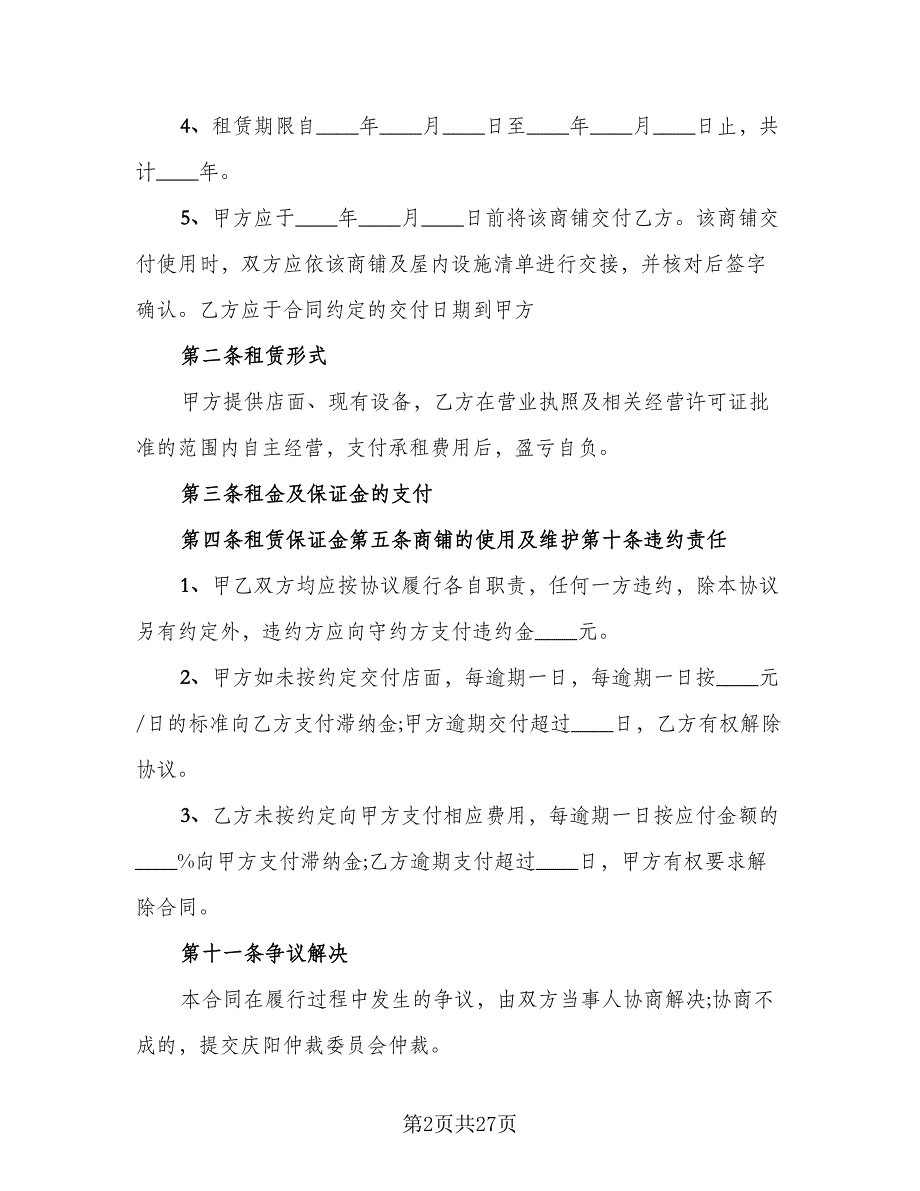 4、租赁期限自____年____月____日至____年____月____日止，共
计____年。
5、甲方应于____年____月____日前将该商铺交付乙方。该商铺交
付使用时，双方应依该商铺及屋内设施清单进行交接，并核对后签字
确认。乙方应于合同约定的交付日期到甲方
第二条租赁形式
甲方提供店面、现有设备，乙方在营业执照及相关经营许可证批
准的范围内自主经营，支付承租费用后，盈亏自负。
第三条租金及保证金的支付
第四条租赁保证金第五条商铺的使用及维护第十条违约责任
1、甲乙双方均应按协议履行各自职责，任何一方违约，除本协议
另有约定外，违约方应向守约方支付违约金____元。
2、甲方如未按约定交付店面，每逾期一日，每逾期一日按____元
/日的标准向乙方支付滞纳金;甲方逾期交付超过____日，乙方有权解除
协议。
3、乙方未按约定向甲方支付相应费用，每逾期一日按应付金额的
____%向甲方支付滞纳金;乙方逾期支付超过____日，甲方有权要求解
除合同。
第十一条争议解决
本合同在履行过程中发生的争议，由双方当事人协商解决;协商不
成的，提交庆阳仲裁委员会仲裁。
第2页共27页